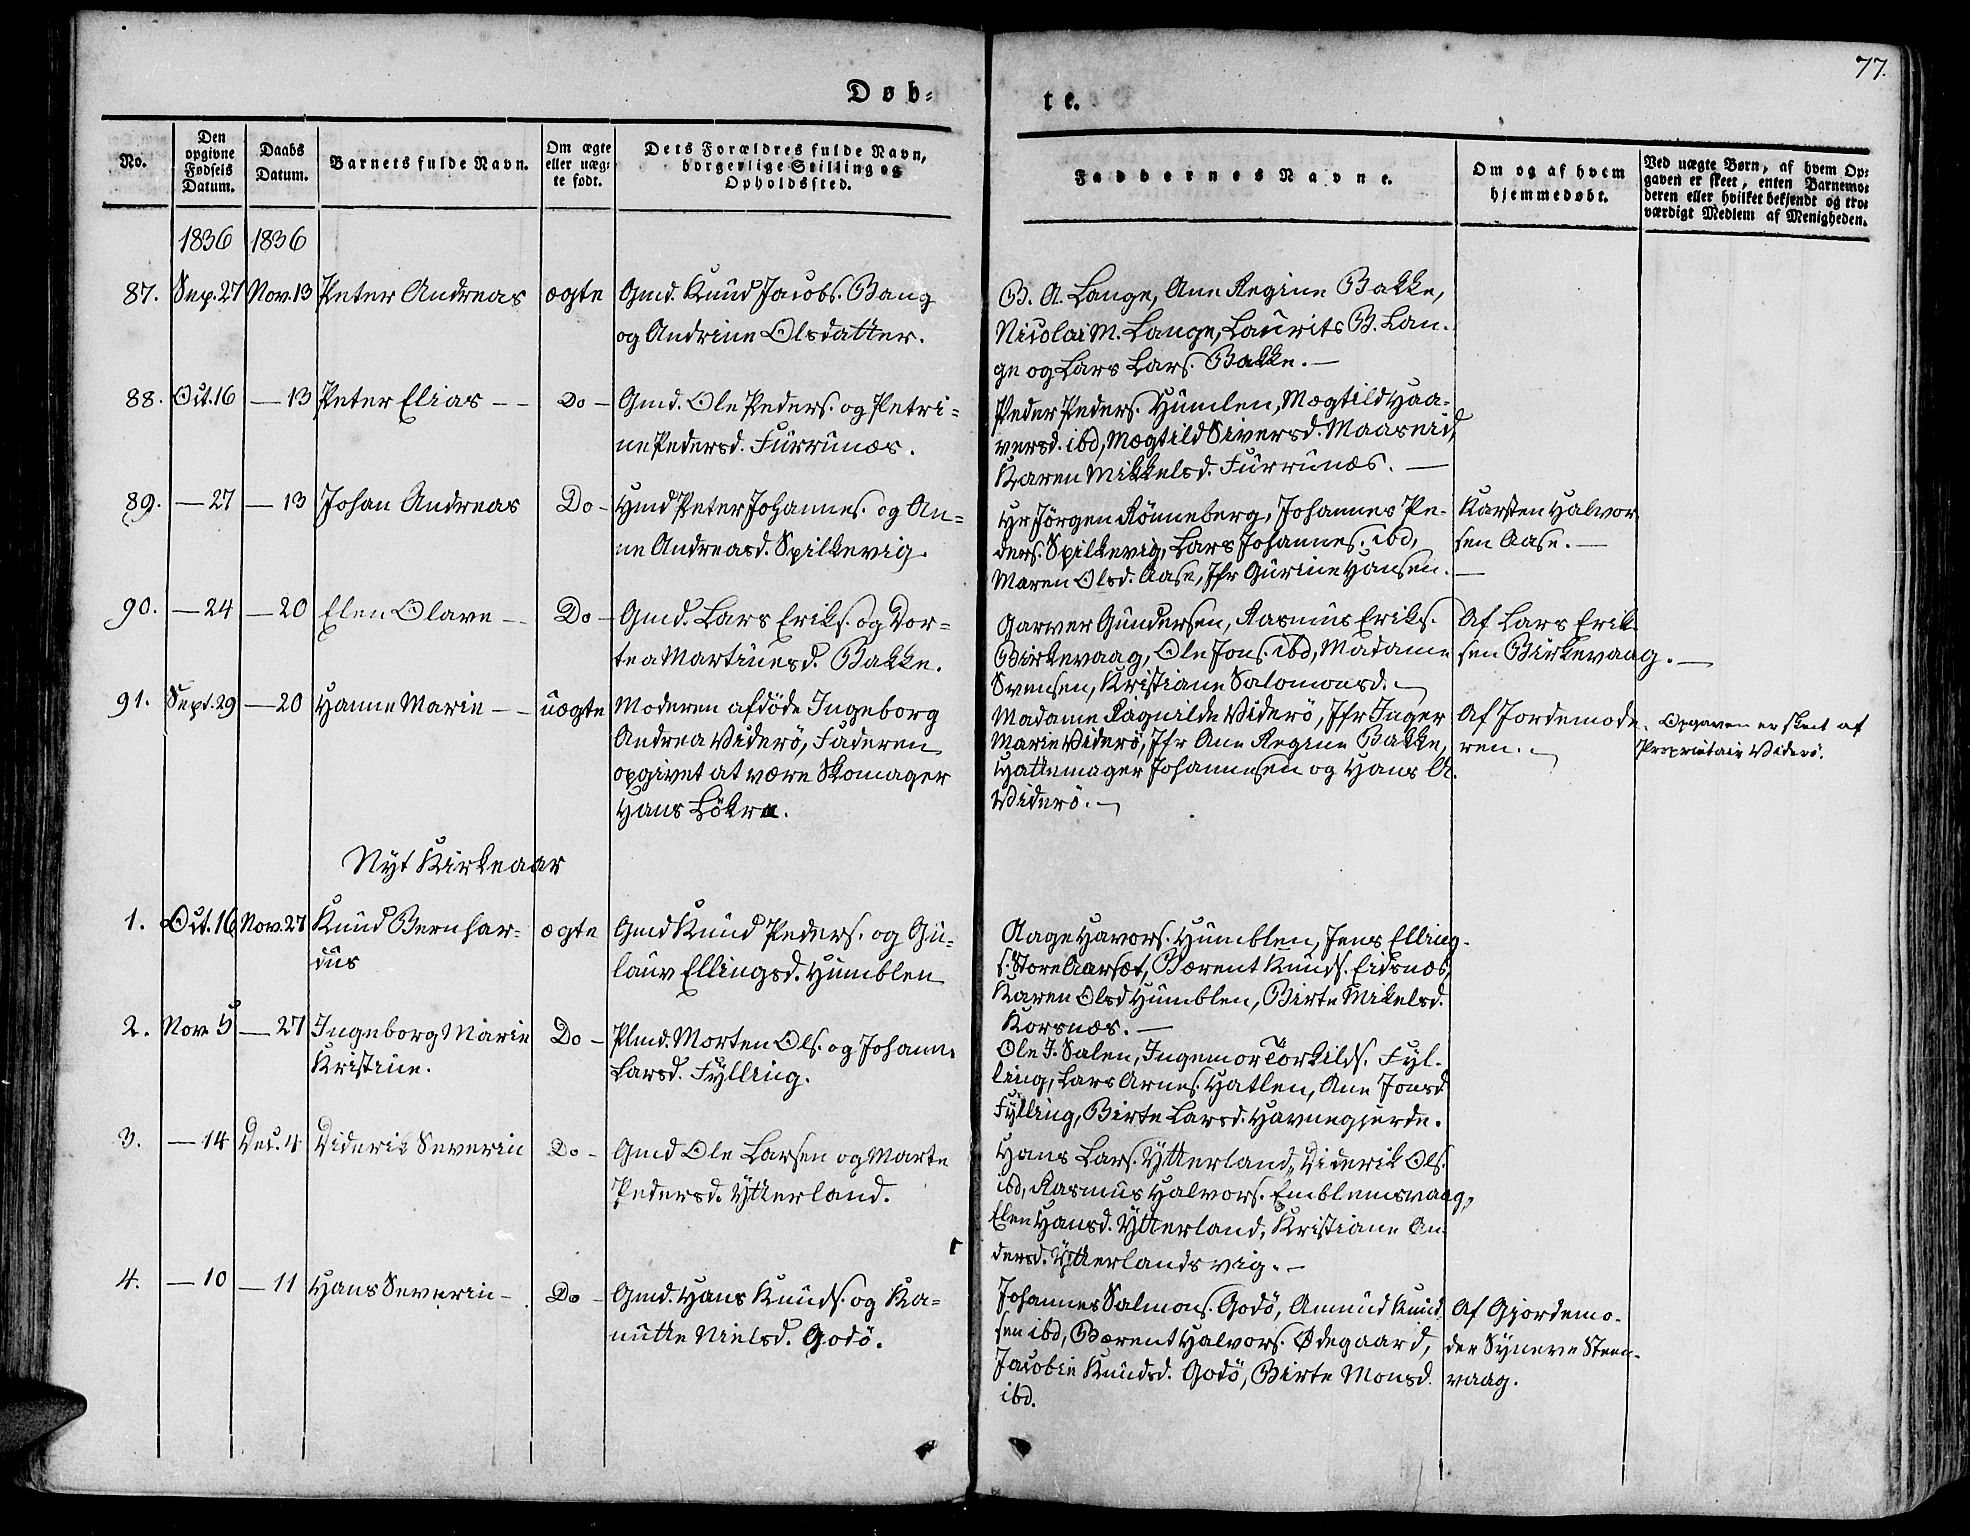 77.
Døb=
te.
No.
Den
opgivne
Fødsels
Datum.
Daabs
Datum.
Barnets fulde Navn.
Om ægte
eller uæg=
te født.
Dets Forældres fulde Navn,
borgerlige Stilling og
Opholdssted.
Faddernes Navne.
Om og af hvem
hjemmedøbt.
Ved uægte Børn, af hvem Op=
gaven er skeet, enten Barnemo=
deren eller hvilket bekjendt og tro=
værdigt Medlem af Menigheden.
1836 1836
87. Sep. 27 Nov. 13 Peter Andreas ægte Gmd. Knud Jacobs. Bang
og Andrine Olsdatter.
B. A. Lange, Ane Regine Bakke,
Nicolai M. Lange, Laurits B. Lan-
ge og Lars Lars. Bakke. —
88. Oct. 16 — 13 Peter Elias — — Do — Gmd. Ole Peders. og Petri=
ne Pedersd. Furrunæs.
Peder Peders. Humlen, Mægtild Haa-
versd. ibd, Mægtild Siversd. Maaseid,
Karen Mikkelsd. Furrunæs. —
89. — 27 — 13 Johan Andreas Do — Hmd Peter Johannes. og An=
ne Andreasd. Spilkevig.
Hr Jörgen Rönneberg, Johannes Pe-
ders. Spilkevig, Lars Johannes. ibd,
Maren Olsd. Aase, Jfr Gurine Hansen. —
Karsten Halvor
sen Aase. —
90. — 24 — 20 Elen Olave — — Do — Gmd. Lars Eriks. og Dor=
tea Martinesd. Bakke.
Garver Gundersen, Rasmus Eriks.
Birkevaag, Ole Jons. ibd, Madame
Svensen, Kristiane Salomonsd. —
Af Lars Erik
sen Birkevaag. —
91. Sept. 29 — 20 Hanne Marie — — uægte Moderen afdöde Ingeborg
Andrea Viderö, Faderen
opgivet at være Skomager
Hans Lökra.
Madame Ragnilde Viderö, Jfr Inger
Marie Viderö, Jfr Ane Regine Bakke,
Hattemager Johannesen og Hans A.
Viderö. —
Af Jordemode
ren. —
Opgaven er skeet af
Proprietair Viderö.
Nyt Kirkeaar
1. Oct. 16 Nov. 27 Knud Bernhar=
dus
ægte Gmd Knud Peders. og Gu=
lauv Ellingsd. Humblen
Aage Havors. Humblen, Jens Elling-
s. Store Aarsæt, Bærent Knuds. Eidsnæs,
Karen Olsd Humblen, Birte Mikelsd.
Korsnæs. —
2. Nov 5 — 27 Ingeborg Marie
Kristine.
Do — Plmd. Morten Ols. og Johane
Larsd. Fylling.
Ole J. Salen, Ingemor Torkilds. Fyl-
ling, Lars Arnes. Hatlen, Ane Jonsd
Fylling, Birte Larsd. Havnegjerde.
3. — 14 Dec. 4 Diderik Severin Do — Gmd Ole Larsen og Marte
Pedersd. Ytterland.
Hans Lars. Ytterland, Diderik Ols.
ibd, Rasmus Halvors. Emblemsvaag,
Elen Hansd. Ytterland, Kristiane An
dersd. Ytterlandsvig. —
4. — 10 — 11 Hans Severin — Do — Gmd. Hans Knuds. og Ka=
nutte Nielsd. Godö.
Johannes Salmons. Godö, Amund Knud
sen ibd, Bærent Halvors. Ødegaard,
Jacobie Knudsd. Godö, Birte Monsd.
ibd.
Af Gjordemo-
der Synneve Steen-
vaag.